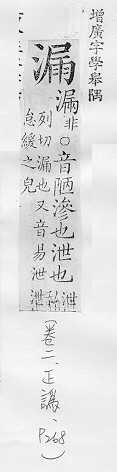 增廣字學舉隅
漏
漏非○音陋滲也泄也
列切漏也又音易泄泄
怠緩之皃
(卷二、正譌、
P268)